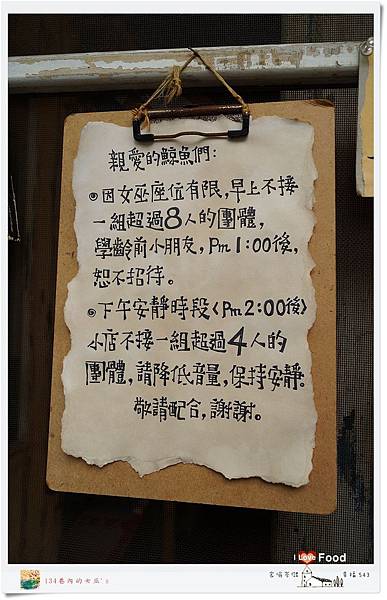 親愛的鯨魚們:
◎因女巫座位有限,早上不接
一組超過8人的團體,
學齡前小朋友,Pm 1:00後,
恕不招待。
◎下午安靜時段<Pm 2:00後>
小店不接一組超過4人的
團體,請降低音量,保持安靜。
敬請配合,謝謝。
I Love Food
134巷內的女巫's
幸福 543